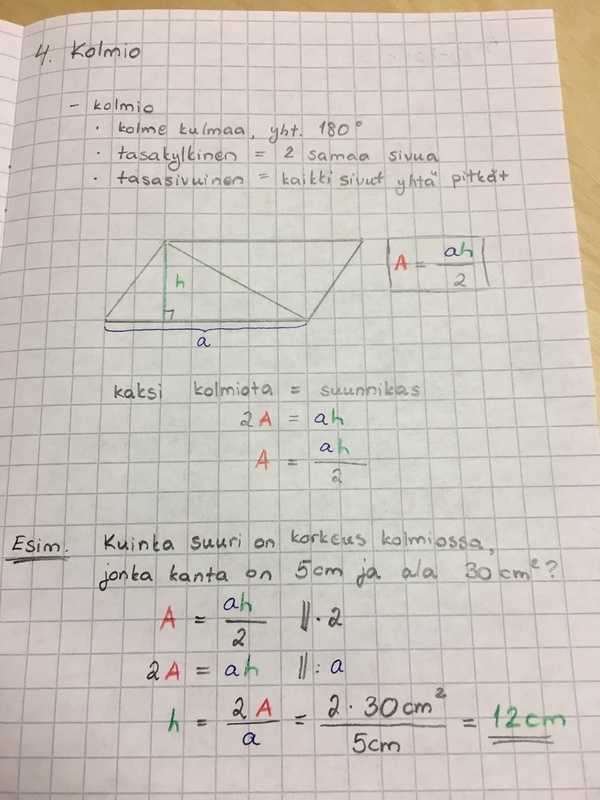 4. Kolmio
- kolmio
· kolme kulmaa, yht. 180°
· tasakylkinen = 2 samaa sivua
· tasasivuinen = kaikki sivut yhtä pitkät
h
A = ah/2
a
kaksi kolmiota = suunnikas
2A = ah
A = ah/2
Esim. Kuinka suuri on korkeus kolmiossa,
jonka kanta on 5cm ja ala 30 cm²?
A = ah/2 ||·2
2A = ah ||: a
h = 2A/a = 2·30cm²/5cm = 12cm